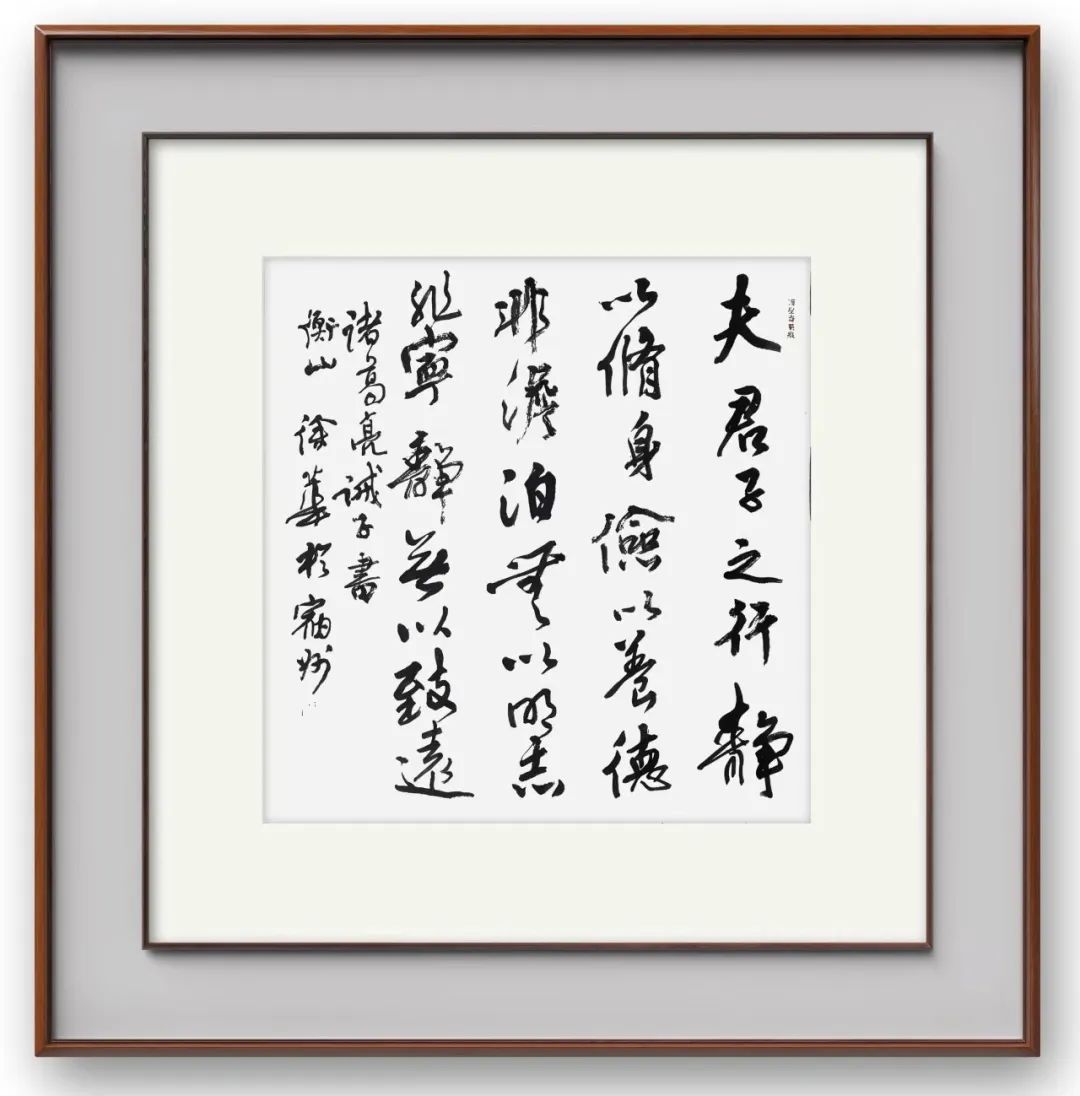 夫君子之行静
以脩身儉以養德
非澹泊無以明志
非寧靜無以致遠
諸葛亮誡子書
衡山 徐華於宿州